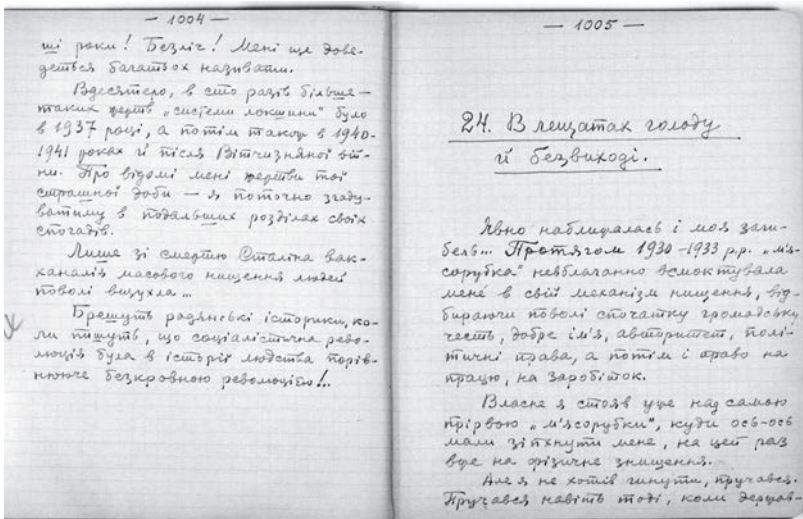 — 1004 —
ші роки! Безліч! Мені ще дове-
деться багатьох називати.
Вдесятеро, в сто разів більше —
таких жертв „системи локшини" було
в 1937 році, а потім також в 1940-
1941 роках й після Вітчизняної вій-
ни. Про відомі мені жертви тої
страшної доби — я поточно згаду-
ватиму в подальших розділах своїх
спогадів.
Лише зі смертю Сталіна вак-
ханалія масового нищення людей
поволі вщухла...
Брешуть радянські історики, ко-
ли пишуть, що соціалістична рево-
люція була в історії людства порів-
нююче безкровною революцією!..
— 1005 —
24. В лещатах голоду
й безвиході.
Явно наближалась і моя заги-
бель... Протягом 1930-1933 р.р. „м'я-
сорубка" невблаганно всмоктувала
мене в свій механізм нищення, від-
бираючи поволі спочатку громадську
честь, добре ім'я, авторитет, полі-
тичні права, а потім і право на
працю, на заробіток.
Власне я стояв уже над самою
прірвою „м'ясорубки", куди ось-ось
мали зіпхнути мене, на цей раз
вже на фізичне знищення.
Але я не хотів гинути, пручався.
Пручався навіть тоді, коли держав-